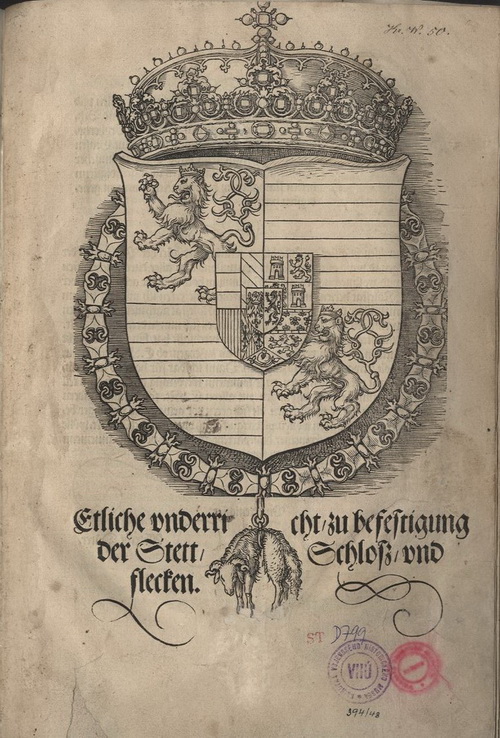 50.
Etliche vnderricht/zu befestigung
der Stett/ Schloß/ vnd
flecken.
ST D799
VHÚ
394/43